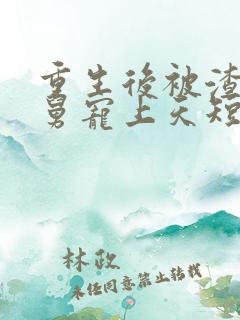 重生後被渣
舅寵上天短
林政
未任同意禁止轉載